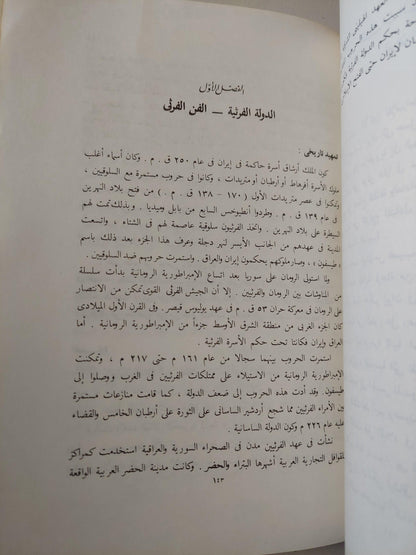 الفصل الأول
الدولة الفرثية — الفن الفرثى
تمهيد تاريخى :
كون الملك أرشاق أسرة حاكمة فى إيران فى عام ٢٥٠ ق . م . وكان أسماء أغلب
ملوك الأسرة أفرهاط أو أرطبان أو متريدات ، وكانوا فى حروب مستمرة مع السلوقيين ،
وتمكنوا فى عصر متريدات الأول ( ١٧٠ — ١٣٨ ق . م . ) من فتح بلاد النهرين
فى عام ١٣٩ م . وطردوا أنطيوخس السابع من بابل وميديا . وبذلك تمت لهم
السيطرة على بلاد النهرين . واتخذ الفرثيون سلوقية عاصمة لهم فى الشتاء ، واتسعت
المدينة فى عهدهم من الجانب الأيسر لنهر دجلة وعرف هذا الجزء بعد ذلك باسم
« طيسفون » ، وصار ملوكهم يحكمون إيران والعراق . واستمرت حروبهم ضد السلوقيين .
ولما استولى الرومان على سوريا بعد اتساع الإمبراطورية الرومانية بدأت سلسلة
من المناوشات بين الرومان والفرثيين . إلا أن الجيش الفرثى القوى تمكن من الانتصار
على الرومان فى معركة حران ٥٣ ق . م . فى عهد يوليوس قيصر . وفى القرن الأول الميلادى
كان الجزء الغربى من منطقة الشرق الأوسط جزءاً من الإمبراطورية الرومانية . أما
العراق وإيران فكانتا تحت حكم الأسرة الفرثية .
استمرت الحروب بينهما سجالا من عام ١٦١ م حتى ٢١٧ م ، وتمكنت
الإمبراطورية الرومانية من الاستيلاء على ممتلكات الفرثيين فى الغرب ووصلوا إلى
طيسفون . وقد أدت هذه الحروب إلى ضعف الدولة ، كما قامت منازعات مستمرة
بين الأمراء الفرثيين مما شجع أردشير الساسانى على الثورة على أرطبان الخامس والقضاء
عليه عام ٢٢٦ م وكون الدولة الساسانية .
نشأت فى عهد الفرثيين مدن فى الصحراء السورية والعراقية استخدمت كمراكز
للقوافل التجارية العربية أشهرها البتراء والحضر . وكانت مدينة الحضر العربية الواقعة
١٤٣